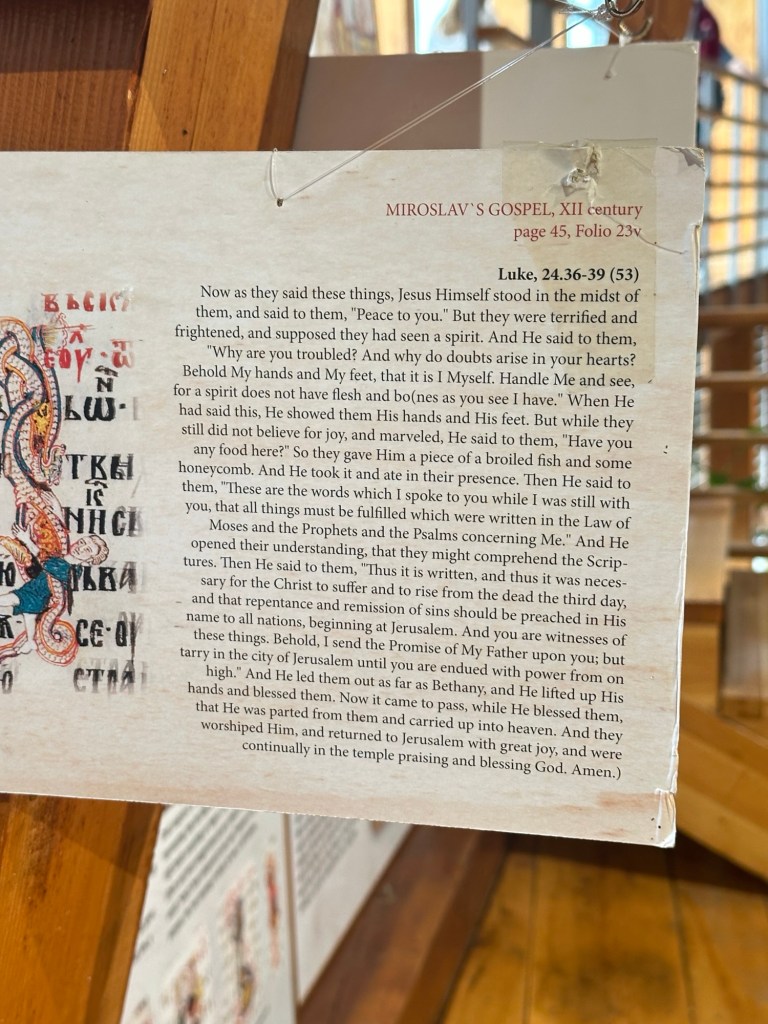 MIROSLAV`S GOSPEL, XII century
page 45, Folio 23v
Luke, 24.36-39 (53)
Now as they said these things, Jesus Himself stood in the midst of
them, and said to them, "Peace to you." But they were terrified and
frightened, and supposed they had seen a spirit. And He said to them,
"Why are you troubled? And why do doubts arise in your hearts?
Behold My hands and My feet, that it is I Myself. Handle Me and see,
for a spirit does not have flesh and bo(nes as you see I have." When He
had said this, He showed them His hands and His feet. But while they
still did not believe for joy, and marveled, He said to them, "Have you
any food here?" So they gave Him a piece of a broiled fish and some
honeycomb. And He took it and ate in their presence. Then He said to
them, "These are the words which I spoke to you while I was still with
you, that all things must be fulfilled which were written in the Law of
Moses and the Prophets and the Psalms concerning Me." And He
opened their understanding, that they might comprehend the Scrip-
tures. Then He said to them, "Thus it is written, and thus it was neces-
sary for the Christ to suffer and to rise from the dead the third day,
and that repentance and remission of sins should be preached in His
name to all nations, beginning at Jerusalem. And you are witnesses of
these things. Behold, I send the Promise of My Father upon you; but
tarry in the city of Jerusalem until you are endued with power from on
high." And He led them out as far as Bethany, and He lifted up His
hands and blessed them. Now it came to pass, while He blessed them,
that He was parted from them and carried up into heaven. And they
worshiped Him, and returned to Jerusalem with great joy, and were
continually in the temple praising and blessing God. Amen.)